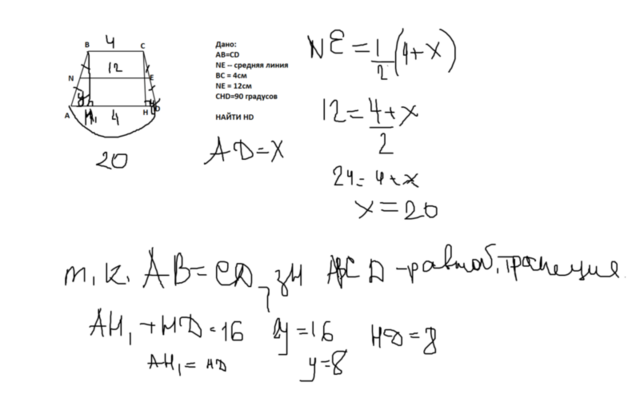 B 4 C
12
N E
y y
A H₁ 4 H
20
Дано:
AB=CD
NE – средняя линия
BC = 4см
NE = 12см
CHD=90 градусов
НАЙТИ HD
AD=X
NE = 1/2 (4+x)
12 = 4+x / 2
24 = 4+x
x = 20
т.к. AB=CD, зн ABCD - равноб. трапеция
AH₁ + HD = 16 2y = 16 HD = 8
AH₁ = HD y = 8